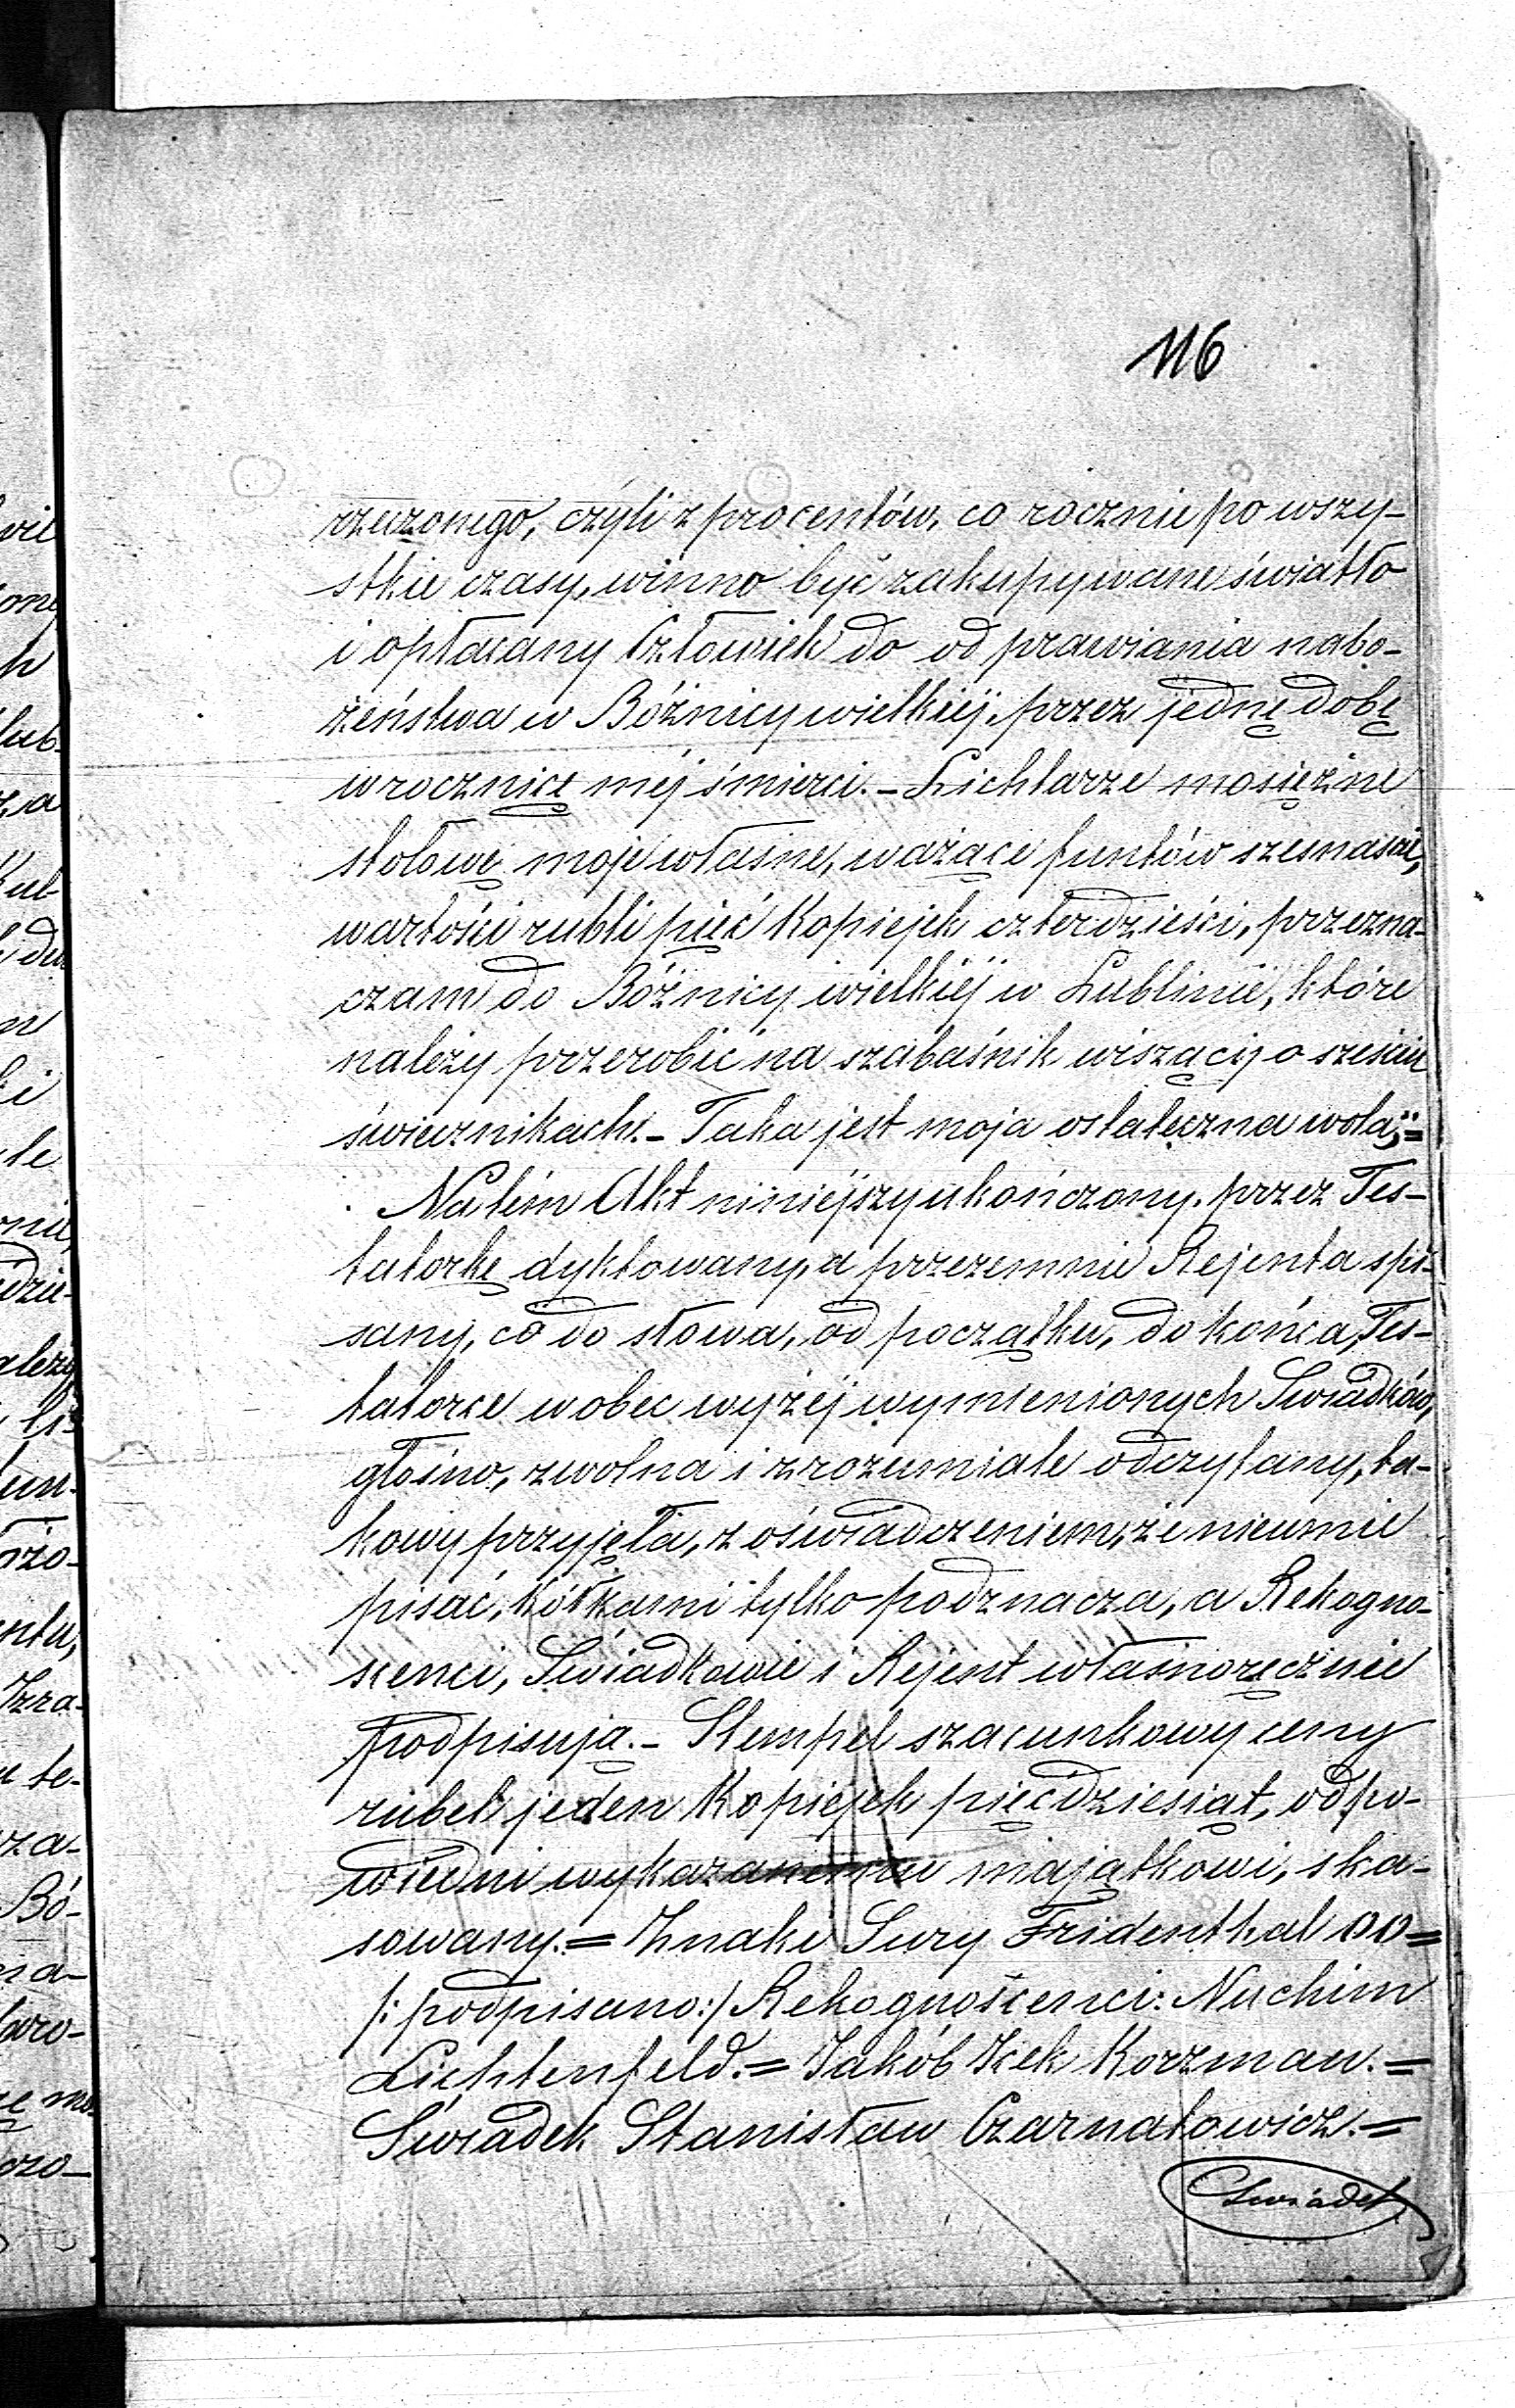 116
rzeczonego, czyli z procentów, co rocznie po wszy-
stkie czasy, winno być zakupywane światło
i opłacany Człowiek do odprawiania nabo-
żeństwa w Bóżnicy wielkiéj, przez jednę dobę
w rocznicę méj śmierci. - Lichtarze mosiężne
stołowe moje własne, ważące funtów szesnaście,
wartości rubli pięć Kopiejek czterdzieści, przezna-
czam do Bóżnicy wielkiéj w Lublinie, które
należy przerobić na szabaśnik wiszący o sześciu
świecznikach. - Taka jest moja ostateczna wola; =
Na tém Akt niniejszy ukończony, przez Tes-
tatorkę dyktowany, a przezemnie Rejenta spi-
sany, co do słowa, od początku, do końca, Tes-
tatorce wobec wyżéj wymienionych Świadków,
głośno, zwolna i zrozumiale odczytany, ta-
kowy przyjęła, z oświadczeniem, że nieumie
pisać, Kółkami tylko podznacza, a Rekogno-
scenci, Świadkowie i Rejent własnoręcznie
podpisują. - Stempel szacunkowy ceny
rubel jeden Kopiejek pięćdziesiąt, odpo-
wiedni wykazanemu majątkowi, ska-
sowany. = Znaki Sury Fridenthal oo =
/: podpisano :/ Rekognoscenci: Nuchim
Lichtenfeld. = Jakób Icek Korzman. =
Świadek Stanisław Czarnatowicz. =
Świadek
vil
one
h
lub-
za
ul
du
n
i
le
nie,
dzie-
ależy
li-
un-
ożo-
ntu,
Izra-
te-
za-
Bó-
na-
wro-
mo-
ozo-